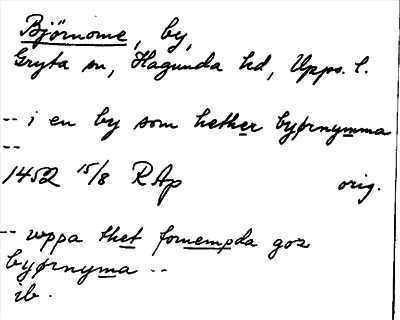 Björnome, by,
Gryta sn, Hagunda hd, Upps. l.
-- i en by som hether byørnymma
--
1452 15/8 RAp orig.
-- vppa thet fornempda goz
byørnyma --
ib.